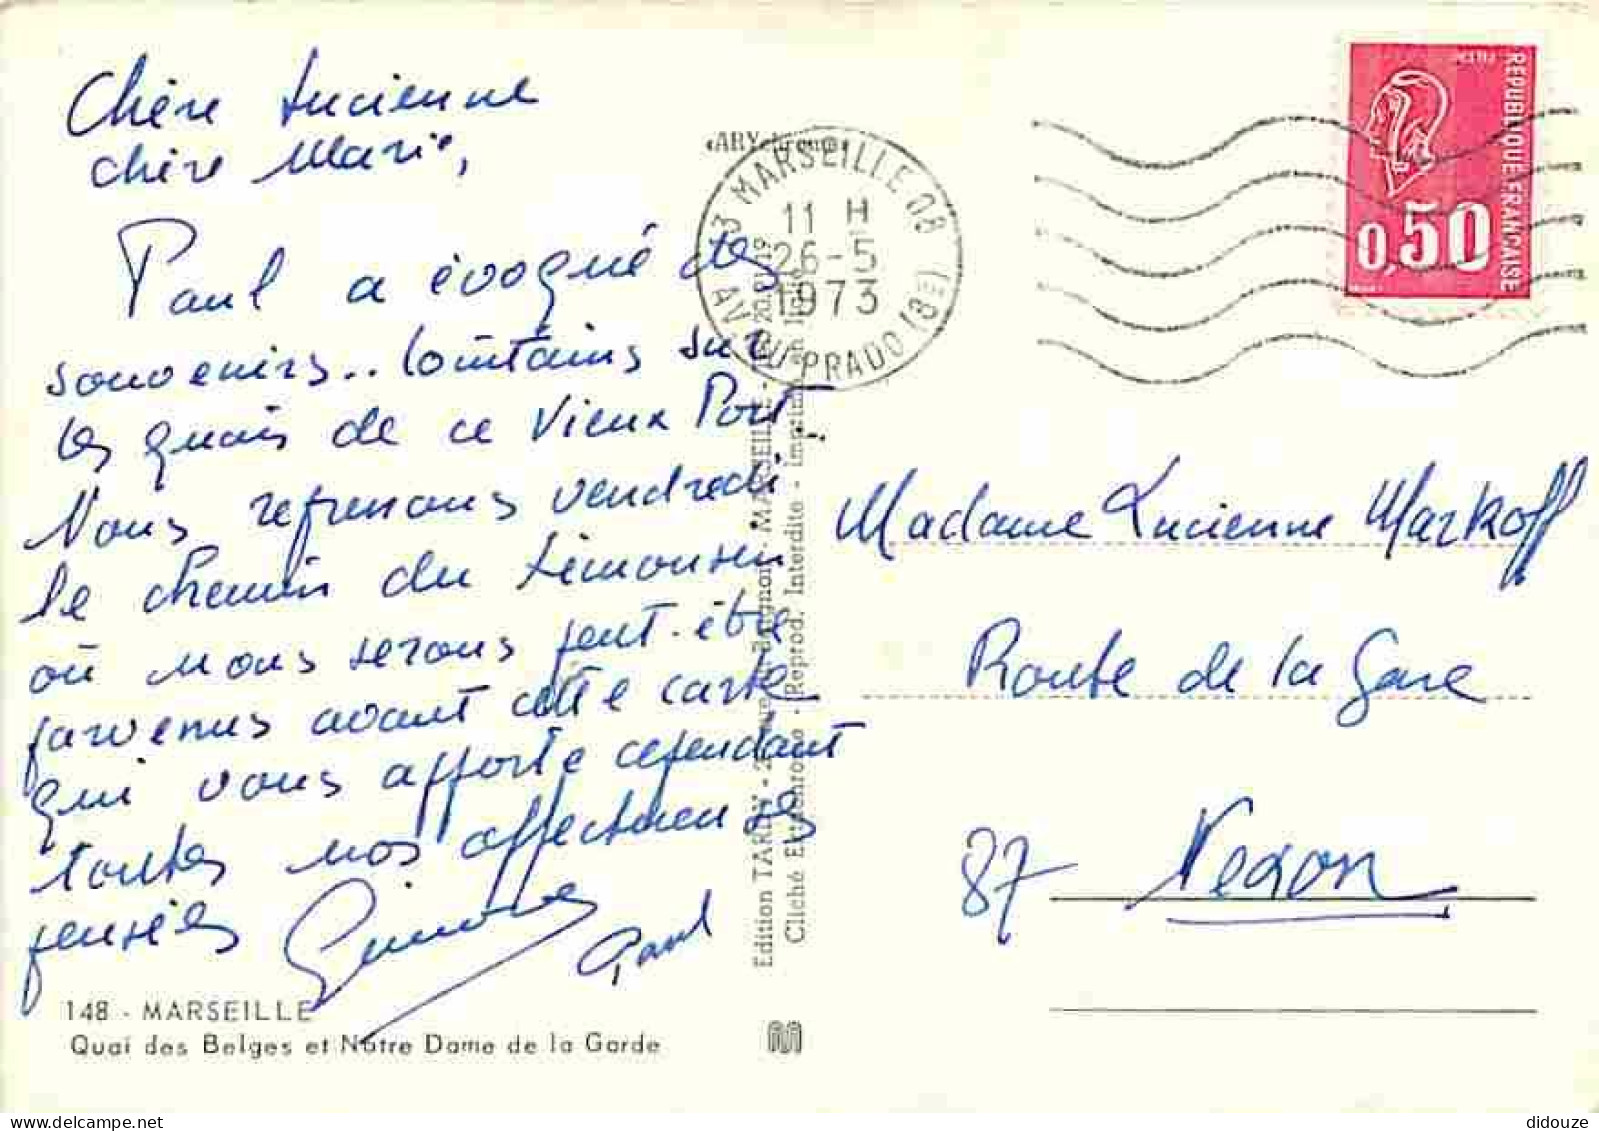 Chère Lucienne
chère Marie,
Paul a évoqué des
souvenirs.. lointains sur
les quais de ce Vieux Port
Nous reprenons vendredi
le chemin du Limousin
où nous serons peut-être
parvenus avant cette carte
qui vous apporte cependant
toutes nos affectueuses
pensées
Paul
148 - MARSEILLE
Quai des Belges et Notre Dame de la Garde
13 MARSEILLE 08
11 H
26-5
1973
AV. DU PRADO (8E)
Edition TARDY
MARSEILLE
Cliché
Reprod. Interdite - Imprimé en
REPUBLIQUE FRANCAISE
0,50
Madame Lucienne Markoff
Route de la Gare
87 Nexon
didouze